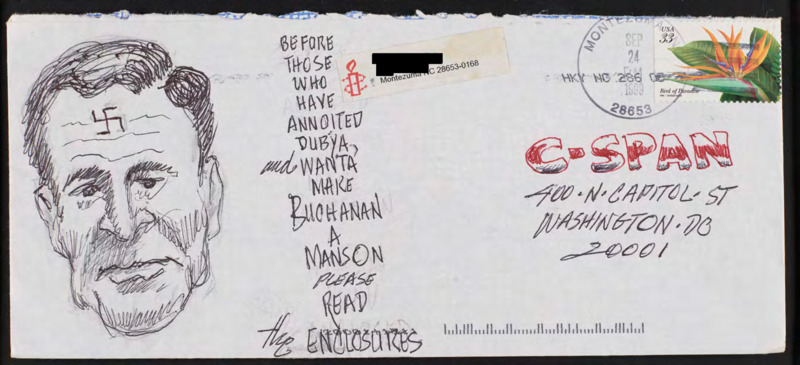 BEFORE
THOSE
WHO
HAVE
ANNOITED
DUBYA,
and WANTA
MAKE
BUCHANAN
A
MANSON
PLEASE
READ
the ENCLOSURES
Montezuma NC 28653-0168
MONTEZUMA
SEP
24
1999
28653
HKY NC 286
USA
33
Bird of Paradise
C-SPAN
400·N·CAPITOL·ST
WASHINGTON·DC
20001